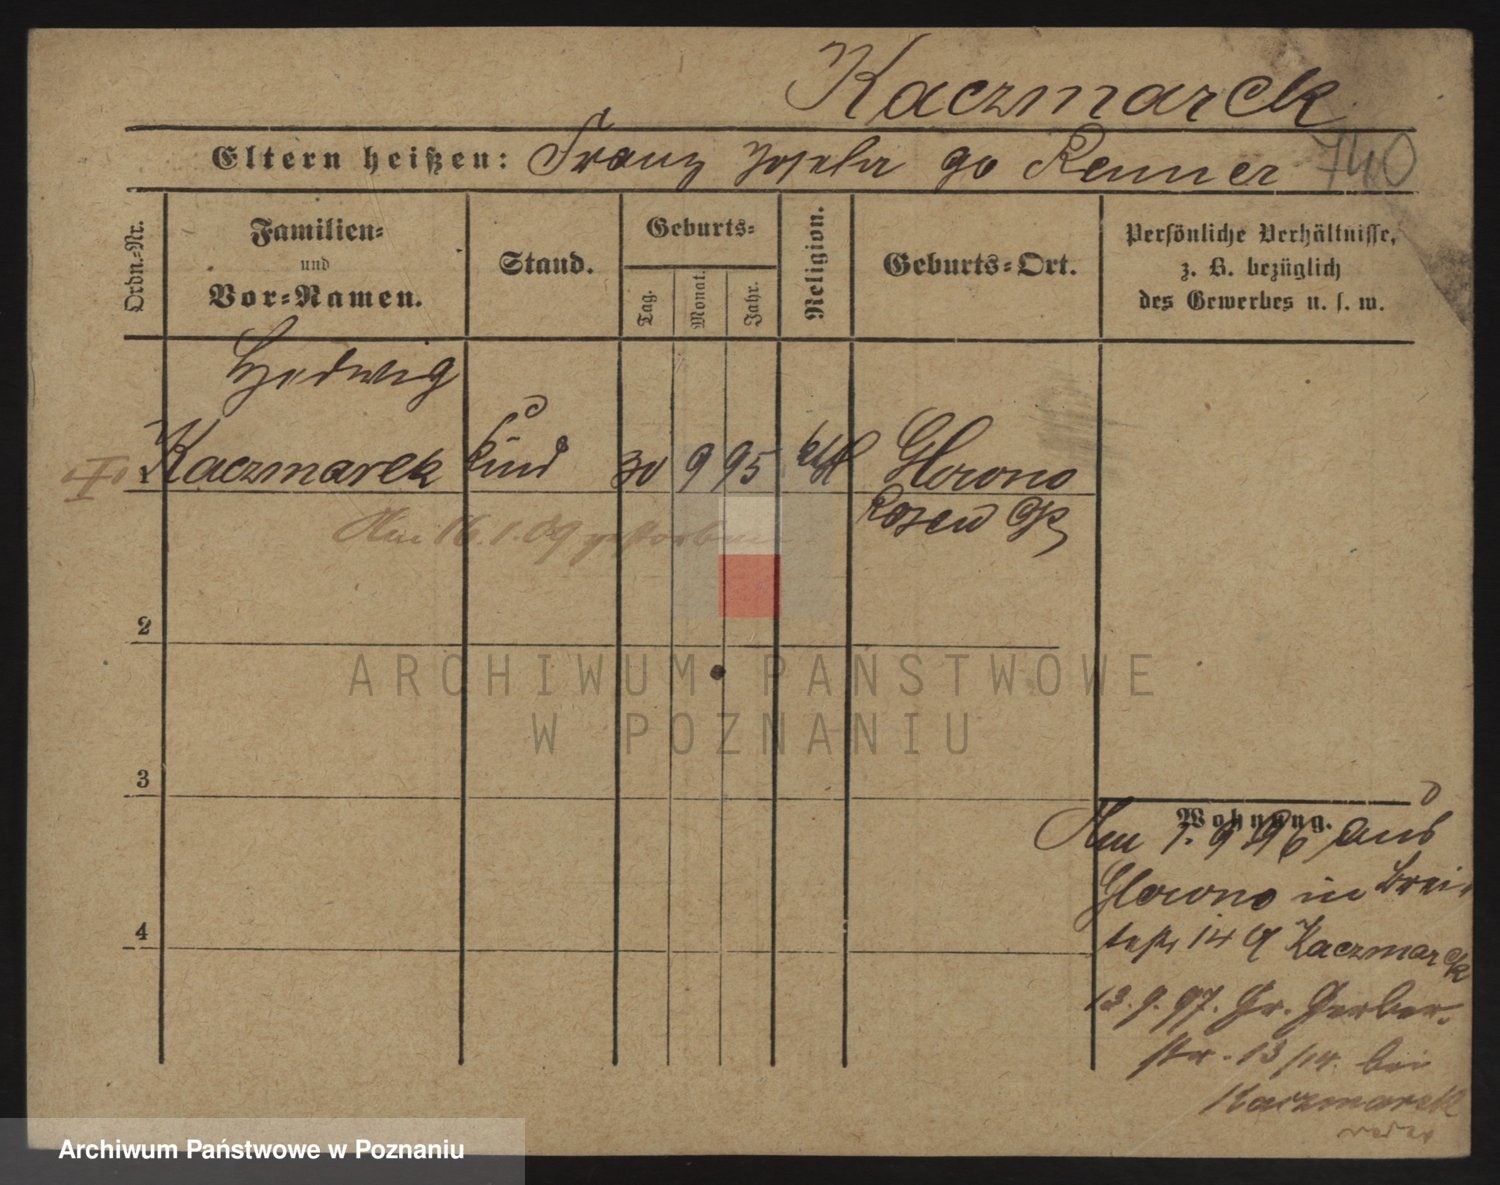 Kaczmarek
Eltern heißen: Franz Josefa go Renner 740
Ordn.-Nr.
Familien-
und
Vor-Namen.
Stand.
Geburts-
Tag.
Monat.
Jahr.
Religion.
Geburts-Ort.
Persönliche Verhältnisse,
z. B. bezüglich
des Gewerbes u. s. w.
Hedwig
1 Kaczmarek Kind 30 9 95 kth Glowno
Posen
Am 16.1.09 gestorben
2
ARCHIWUM PAŃSTWOWE
W POZNANIU
3
Wohnung.
Am 1.9.96 aus
Glowno in Brei-
testr 14 Kaczmarek
13.9.97. Gr. Gerber-
str. 13 bei
Kaczmarek
4
Archiwum Państwowe w Poznaniu